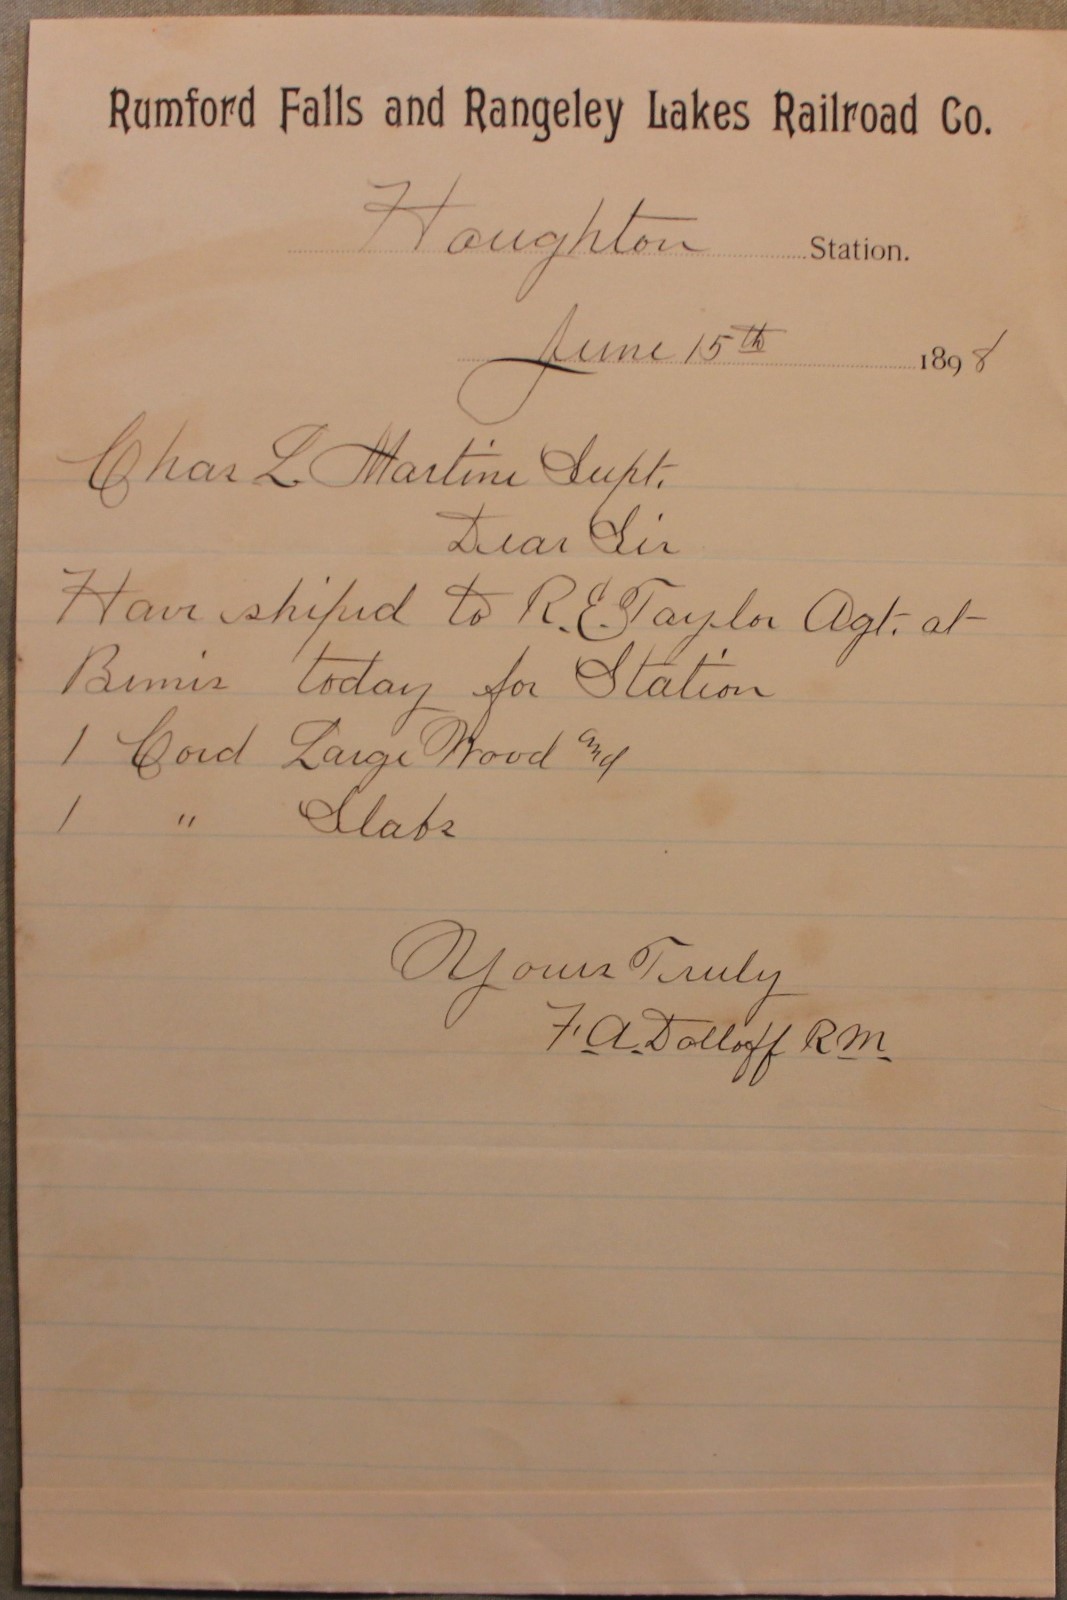 Rumford Falls and Rangeley Lakes Railroad Co.
Houghton Station.
June 15th 1898
Chas L. Martine Supt.
Dear Sir
Have shiped to R. E. Taylor Agt. at
Bemis today for Station
1 Cord Large Wood and
1 " Slabs
Yours Truly
F. A. Dolloff R M.